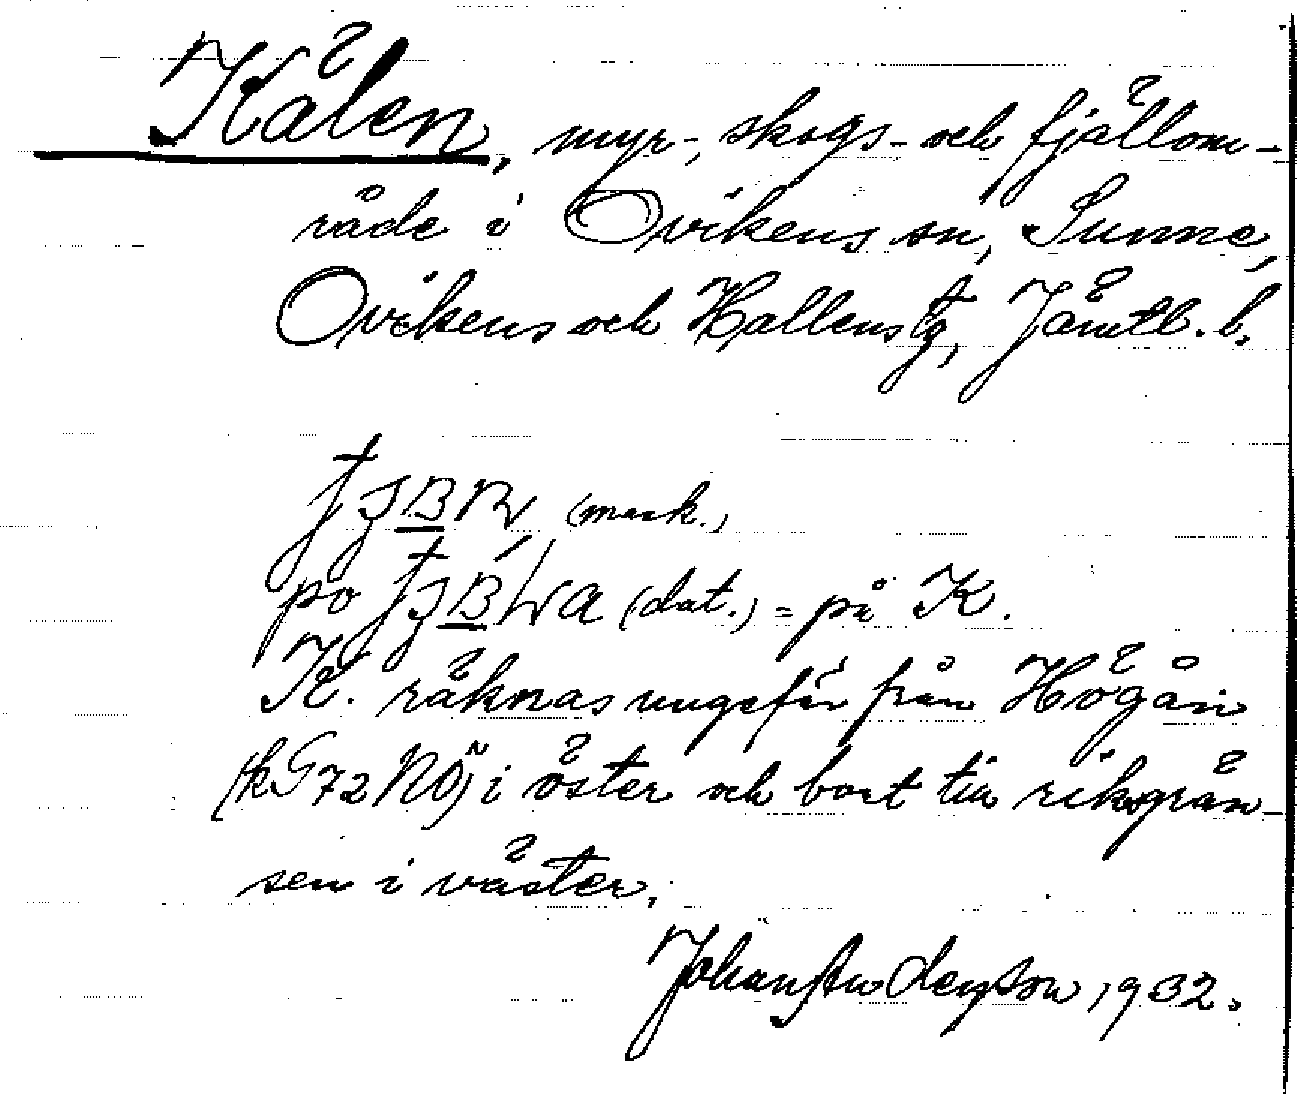 Kälen, myr-, skogs- och fjällom-
råde i Ovikens sn, Sunne,
Ovikens och Hallens tg, Jämtl. l.
(mask.)
po (dat.) = på K.
K. räknas ungefär från Högån
(kG72NÖ) i öster och bort till riksgrän-
sen i väster.
Johan Anderson 1932.